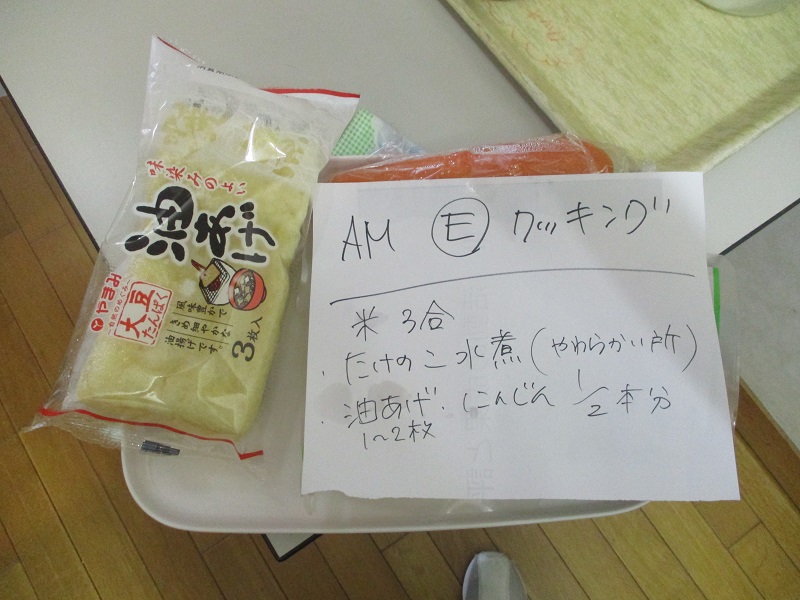 味染みのよい
油あげ
ヤヨみ
大豆
たんぱく
風味豊かで
きめ細やかな
油揚げです。
3枚入
AM Ⓔ クッキング
米 3合
・たけのこ水煮(やわらかい所)
・油あげ・にんじん 1/2本分
1~2枚